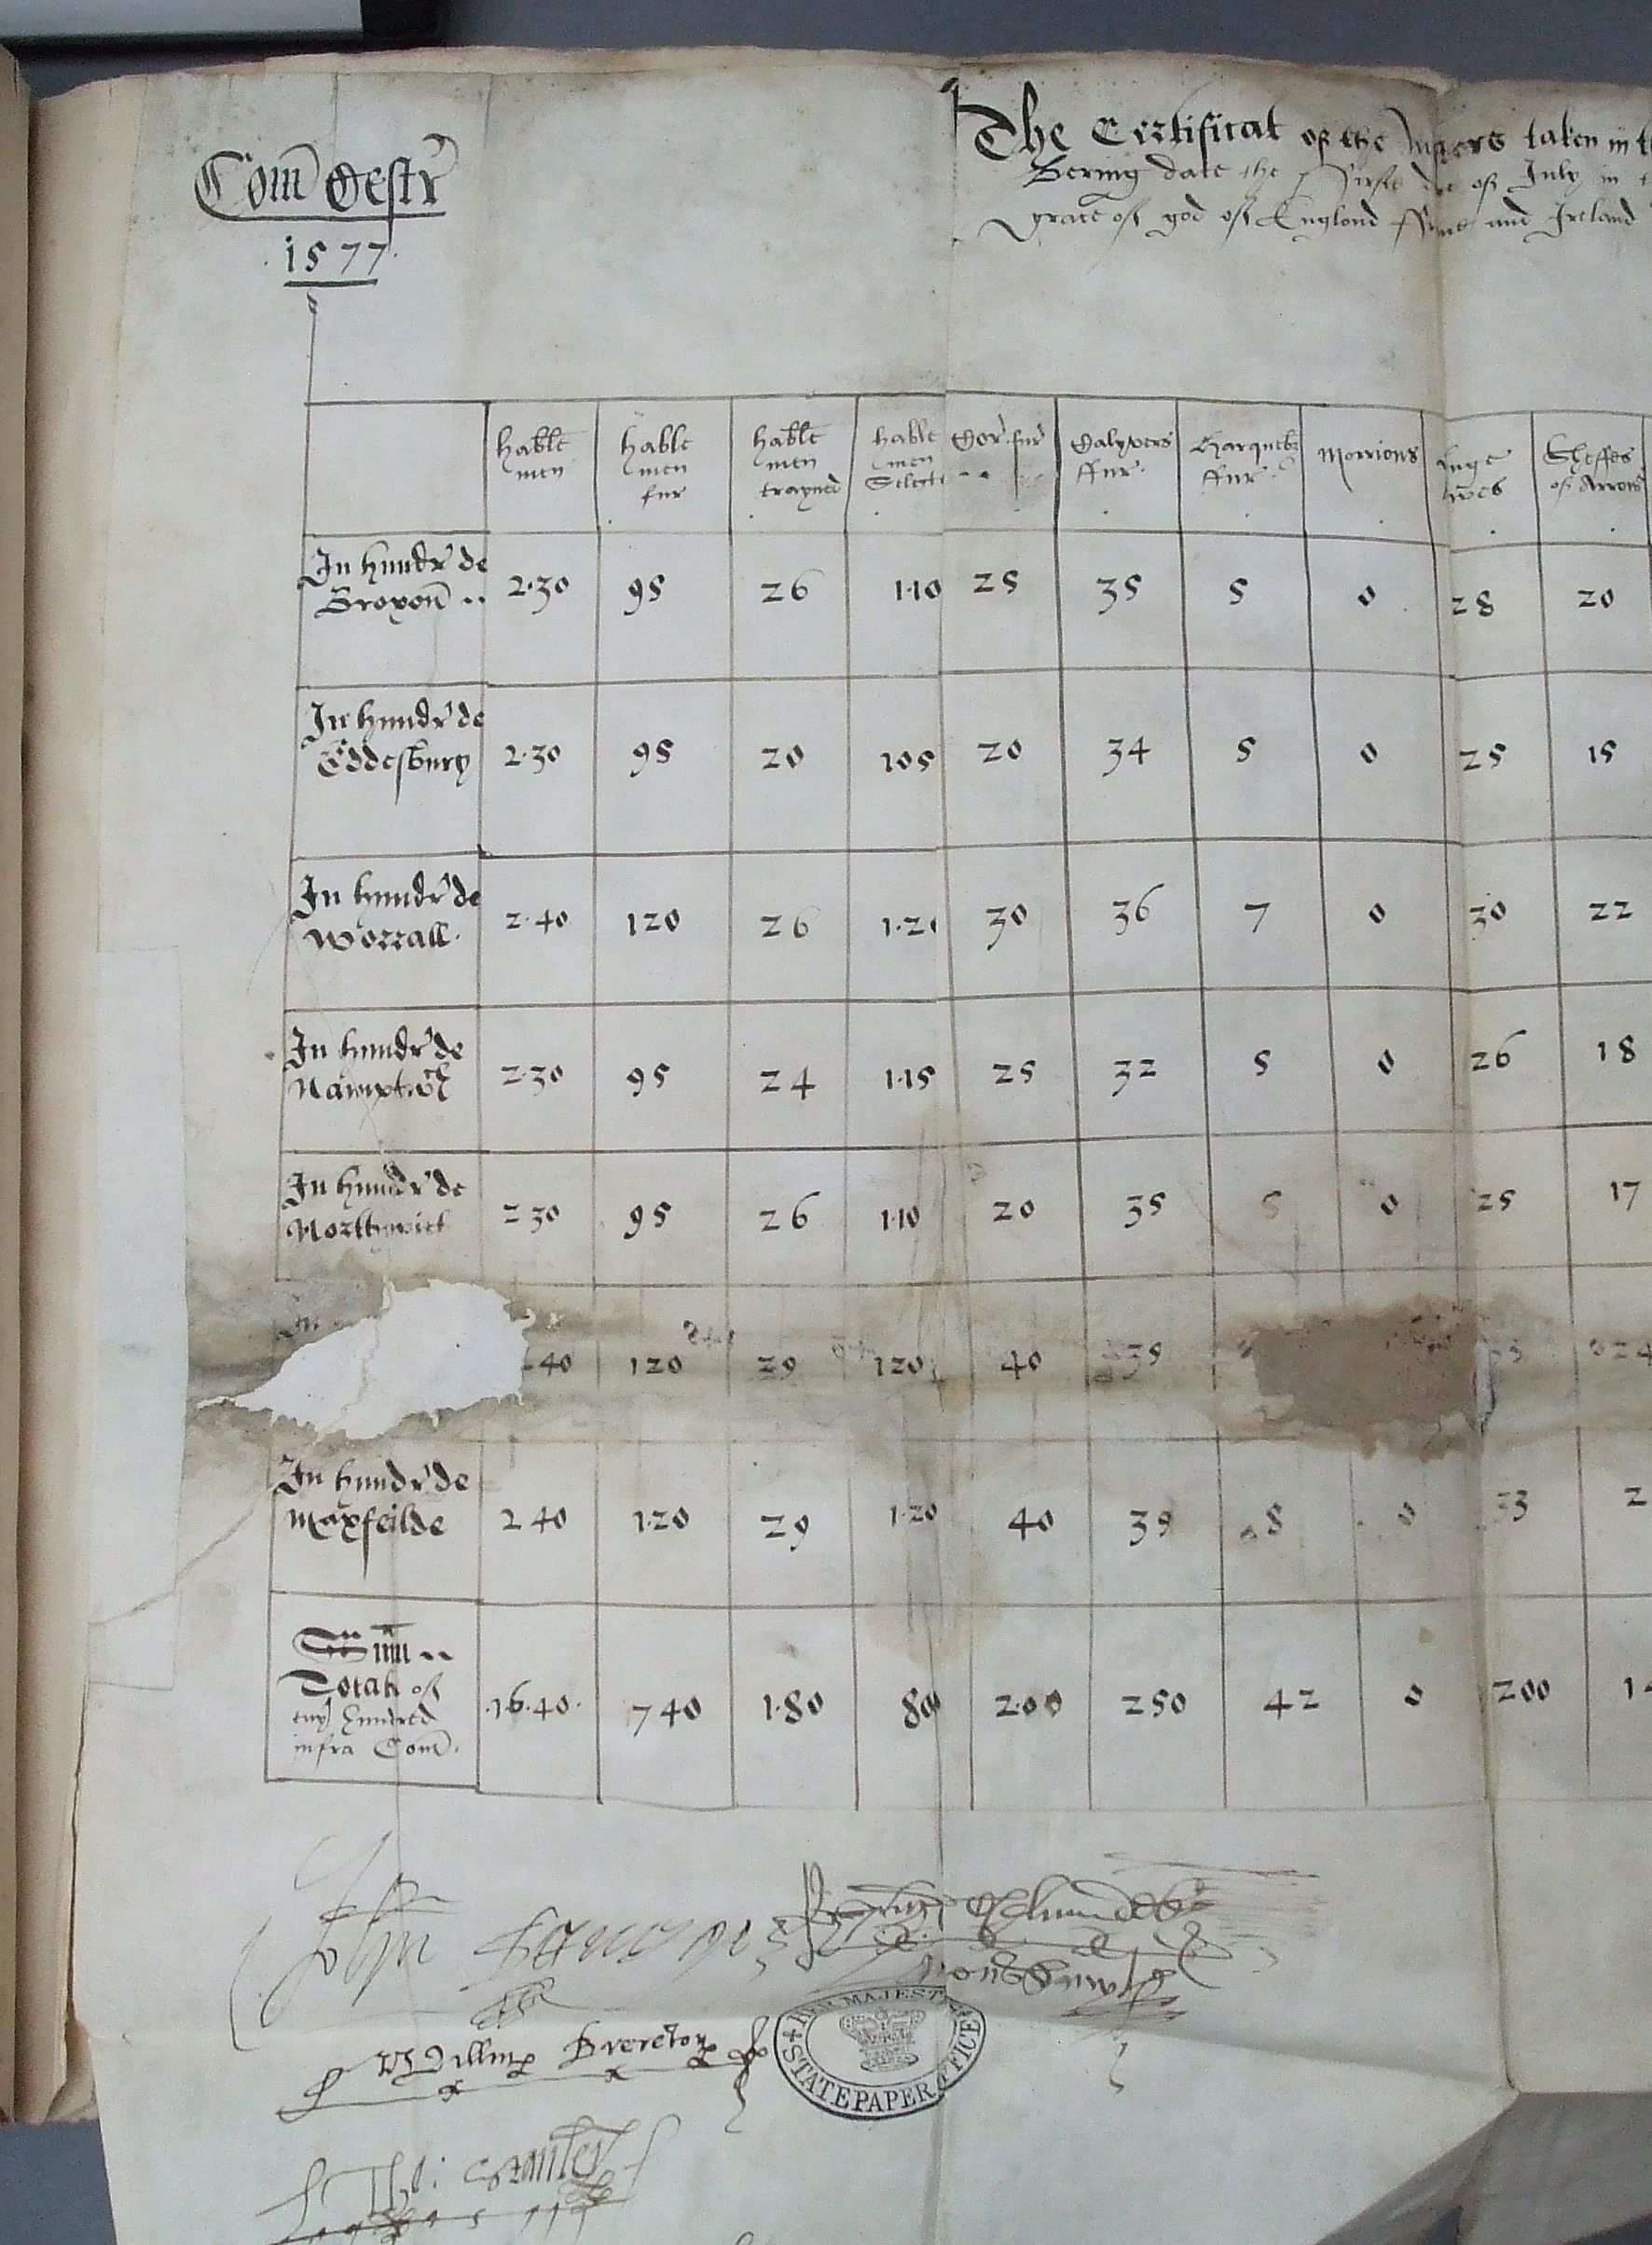 Com Cestr
1577
The Certificat of the Musters taken in
Bering date the Firste of July in
grace of god of Englond and Ireland
hable men
hable men fur
hable men trayned
hable men Selecte
Cor. fur
Calyvers ffur.
Harquebz ffur.
Morrions
Sheffes of Arrows
In hundr de Broxon .. 2.30 95 26 1.10 25 35 5 0 28 20
In hundr de Eddesbury 2.30 95 20 105 20 34 5 0 25 15
In hundr de Worrall. 2.40 120 26 1.2 30 36 7 0 30 22
In hundr de Namptwch 2.30 95 24 1.15 25 32 5 0 26 18
In hundr de Northwich 230 95 26 1.10 20 35 5 0 25 17
In 40 120 29 120 40 39 24
In hundr de Maxfeilde 240 1.20 29 1.20 40 39 8 0 33 2
Sum ..
Totall of
evy hundred
infra Com.
.16.40. 740 1.80 80 2.00 250 42 0 200 1
John
Willm Brereton
HER MAJESTY'S STATE PAPER OFFICE
Tho: Stanley